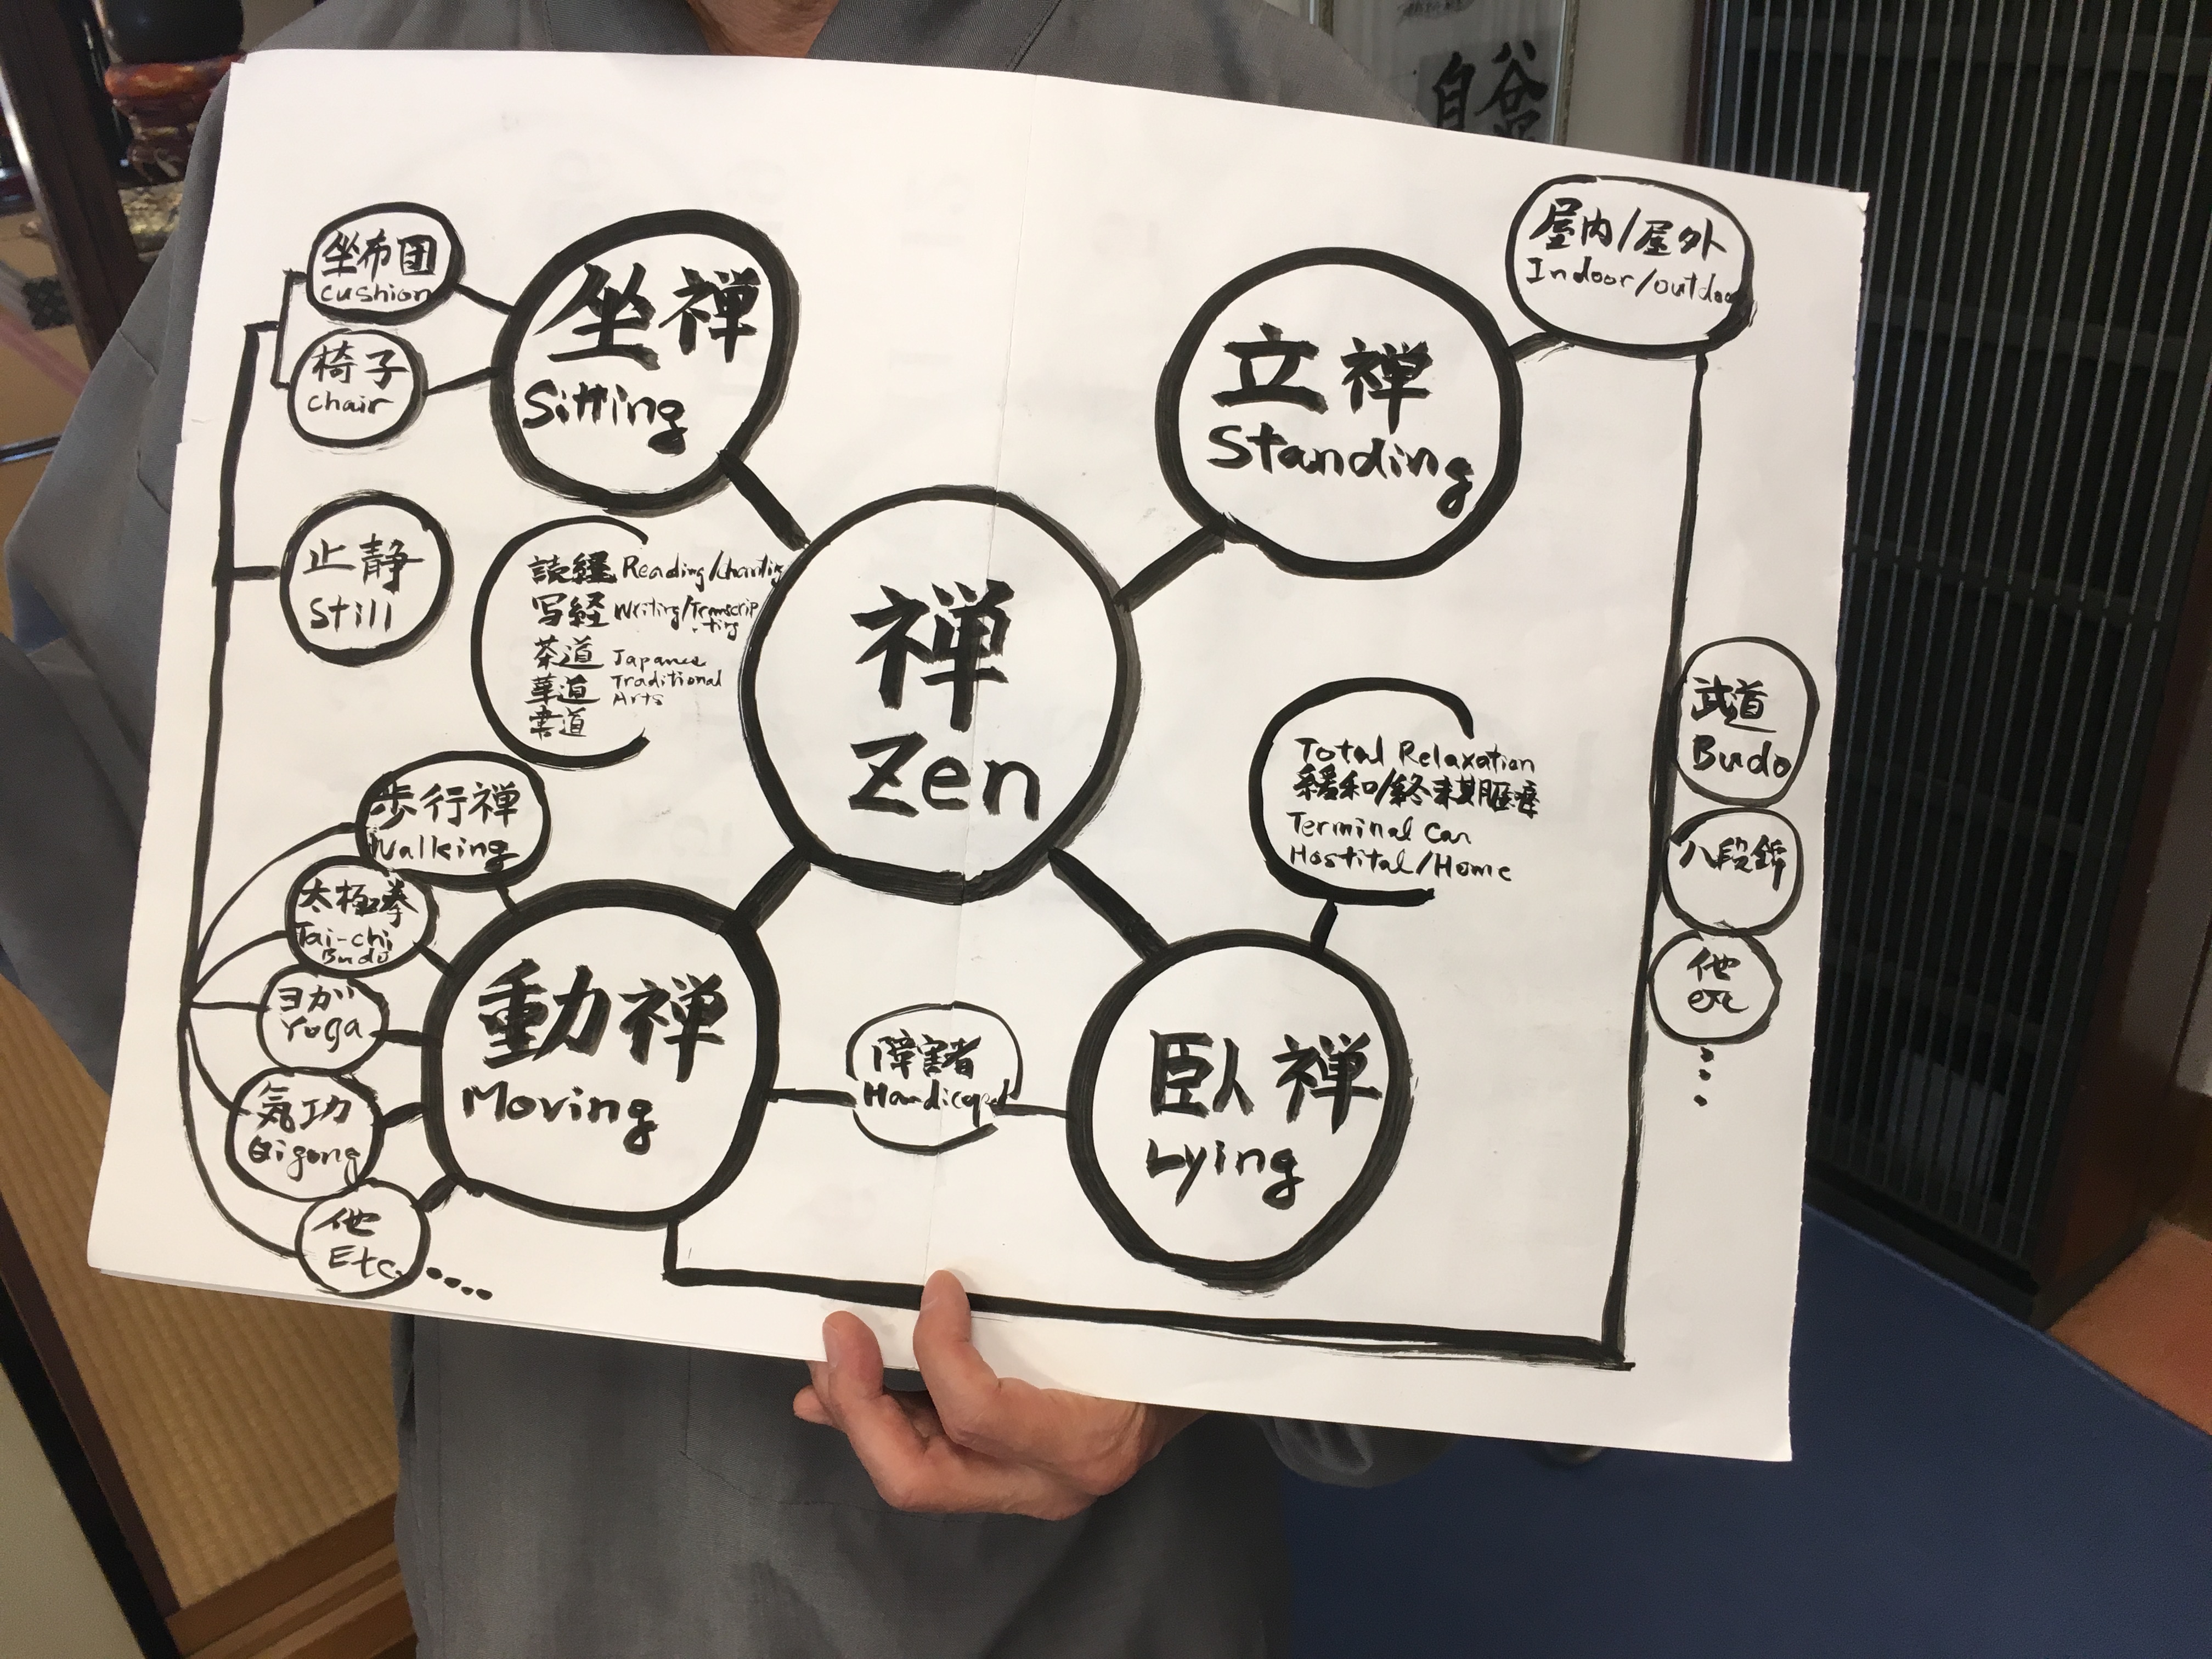 坐布団
cushion
椅子
chair
坐禅
Sitting
止静
Still
読経 Reading/chanting
写経 Writing/Transcrip
ting
茶道 Japanes
華道 Traditional
書道 Arts
禅
Zen
立禅
Standing
屋内/屋外
Indoor/outdoor
武道
Budo
八段錦
他
etc
Total Relaxation
緩和/終末期医療
Terminal Car
Hostital/Home
歩行禅
Walking
太極拳
Tai-chi
Budo
ヨガ
Yoga
気功
Qigong
他
Etc
動禅
Moving
障害者
Handicaped
臥禅
Lying
谷
自